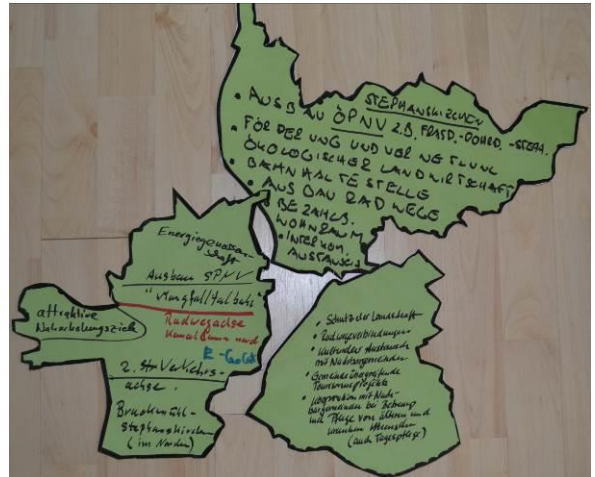 STEPHANSKIRCHEN
• AUSBAU ÖPNV z.B. FRASD.-ROHRD.-STEPH.
• FÖRDERUNG UND VERNETZUNG
ÖKOLOGISCHER LANDWIRTSCHAFT
• BAHNHALTESTELLE
• AUSBAU RADWEGE
• BEZAHLB.
WOHNRAUM
• INTERKOM.
AUSTAUSCH
Energiegenossen-
schaft
Ausbau SPNV
"Mangfalltalbahn"
attraktive
Naherholungsziele
Radwegachse
und
2. Str Verkehrs-
achse.
Bruckmühl-
Stephanskirchen
(im Norden)
• Schutz der Landschaft
• Radwegverbindungen
• Austausch
mit Nachbargemeinden
• Gemeindeübergreifende
Tourismusprojekte
• Kooperation mit Nach-
bargemeinden bei Betreuung
und Pflege von älteren und
kranken Menschen
(auch Tagespflege)